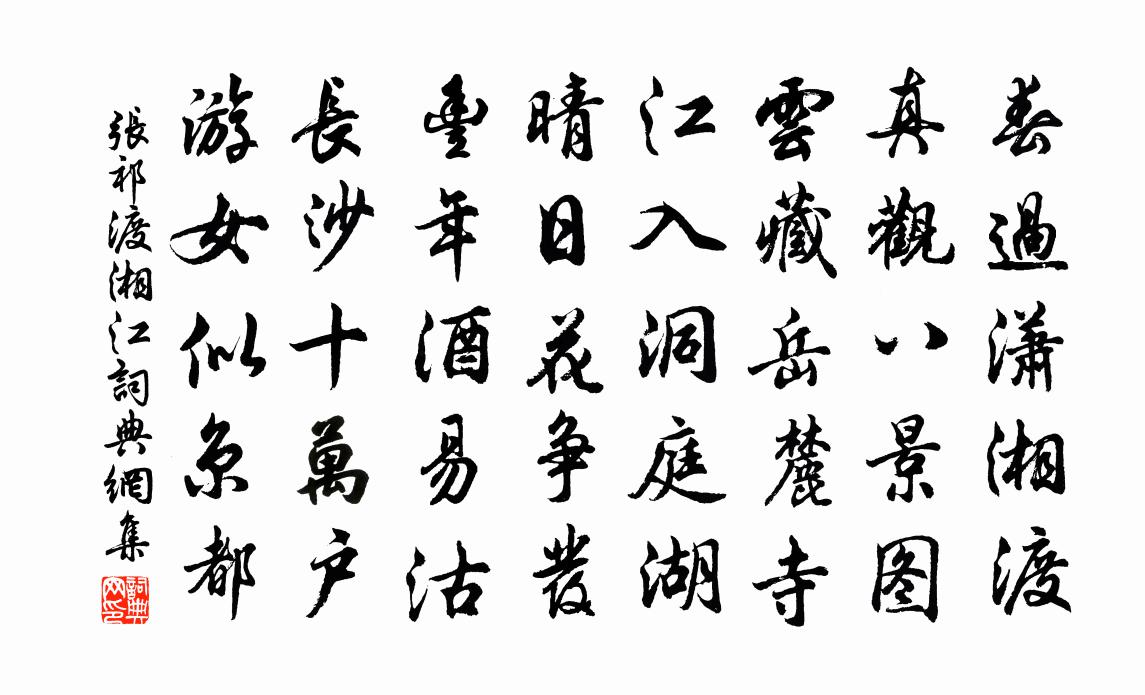 春過潇湘渡
真觀八景图
雲藏岳麓寺
江入洞庭湖
晴日花争發
豊年酒易沽
長沙十萬戶
游女似京都
張祁渡湘江詞典網集
詞典网印